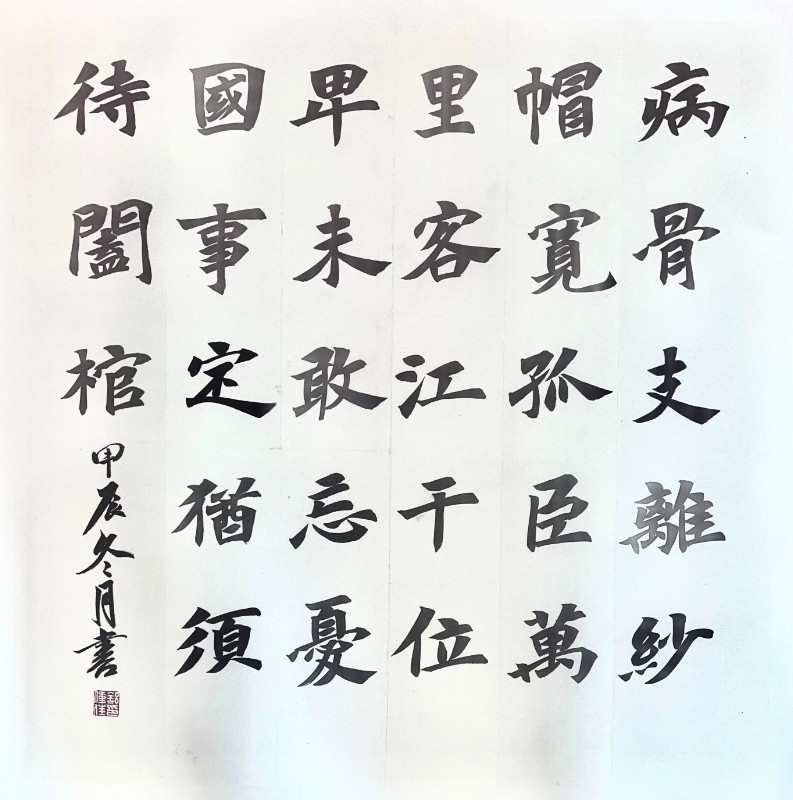 病骨支離紗
帽寬孤臣萬
里客江干位
卑未敢忘憂
國事定猶須
待闔棺
甲辰冬月書